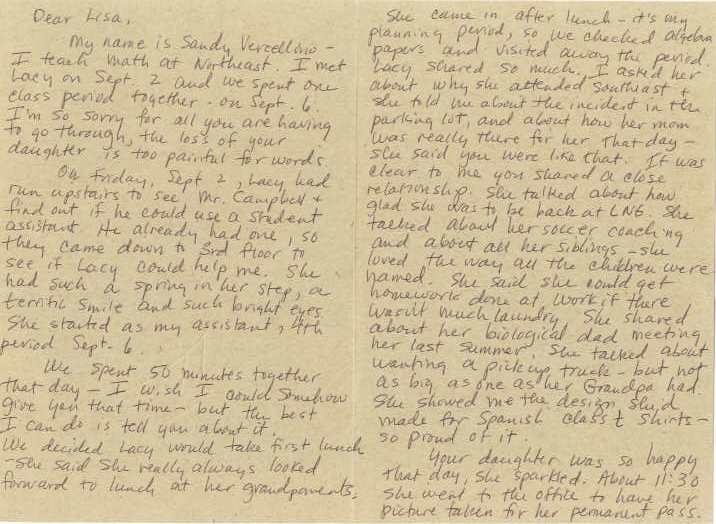 Dear Lisa,
My name is Sandy Vercellino -
I teach math at Northeast. I met
Lacy on Sept. 2 and we spent one
class period together - on Sept. 6.
I'm so sorry for all you are having
to go through, the loss of your
daughter is too painful for words.
On Friday, Sept 2, Lacy had
run upstairs to see Mr. Campbell +
find out if he could use a student
assistant. He already had one, so
they came down to 3rd floor to
see if Lacy could help me. She
had such a spring in her step, a
terrific smile and such bright eyes
She started as my assistant, 4th
period Sept. 6.
We spent 50 minutes together
that day - I wish I could somehow
give you that time - but the best
I can do is tell you about it.
We decided Lacy would take first lunch
- she said she really always looked
forward to lunch at her grandparents.
She came in after lunch - it's my
planning period, so we checked algebra
papers and visited away the period.
Lacy shared so much. I asked her
about why she attended Southeast +
she told me about the incident in the
parking lot, and about how her mom
was really there for her that day -
she said you were like that. It was
clear to me you shared a close
relationship. She talked about how
glad she was to be back at LNE. She
talked about her soccer coaching
and about all her siblings - she
loved the way all the children were
named. She said she could get
homework done at work if there
wasn't much laundry. She shared
about her biological dad meeting
her last summer. She talked about
wanting a pick up truck - but not
as big as one as her Grandpa had.
She showed me the design she'd
made for Spanish class t shirts -
so proud of it.
Your daughter was so happy
that day, she sparkled. About 11:30
she went to the office to have her
picture taken for her permanent pass.